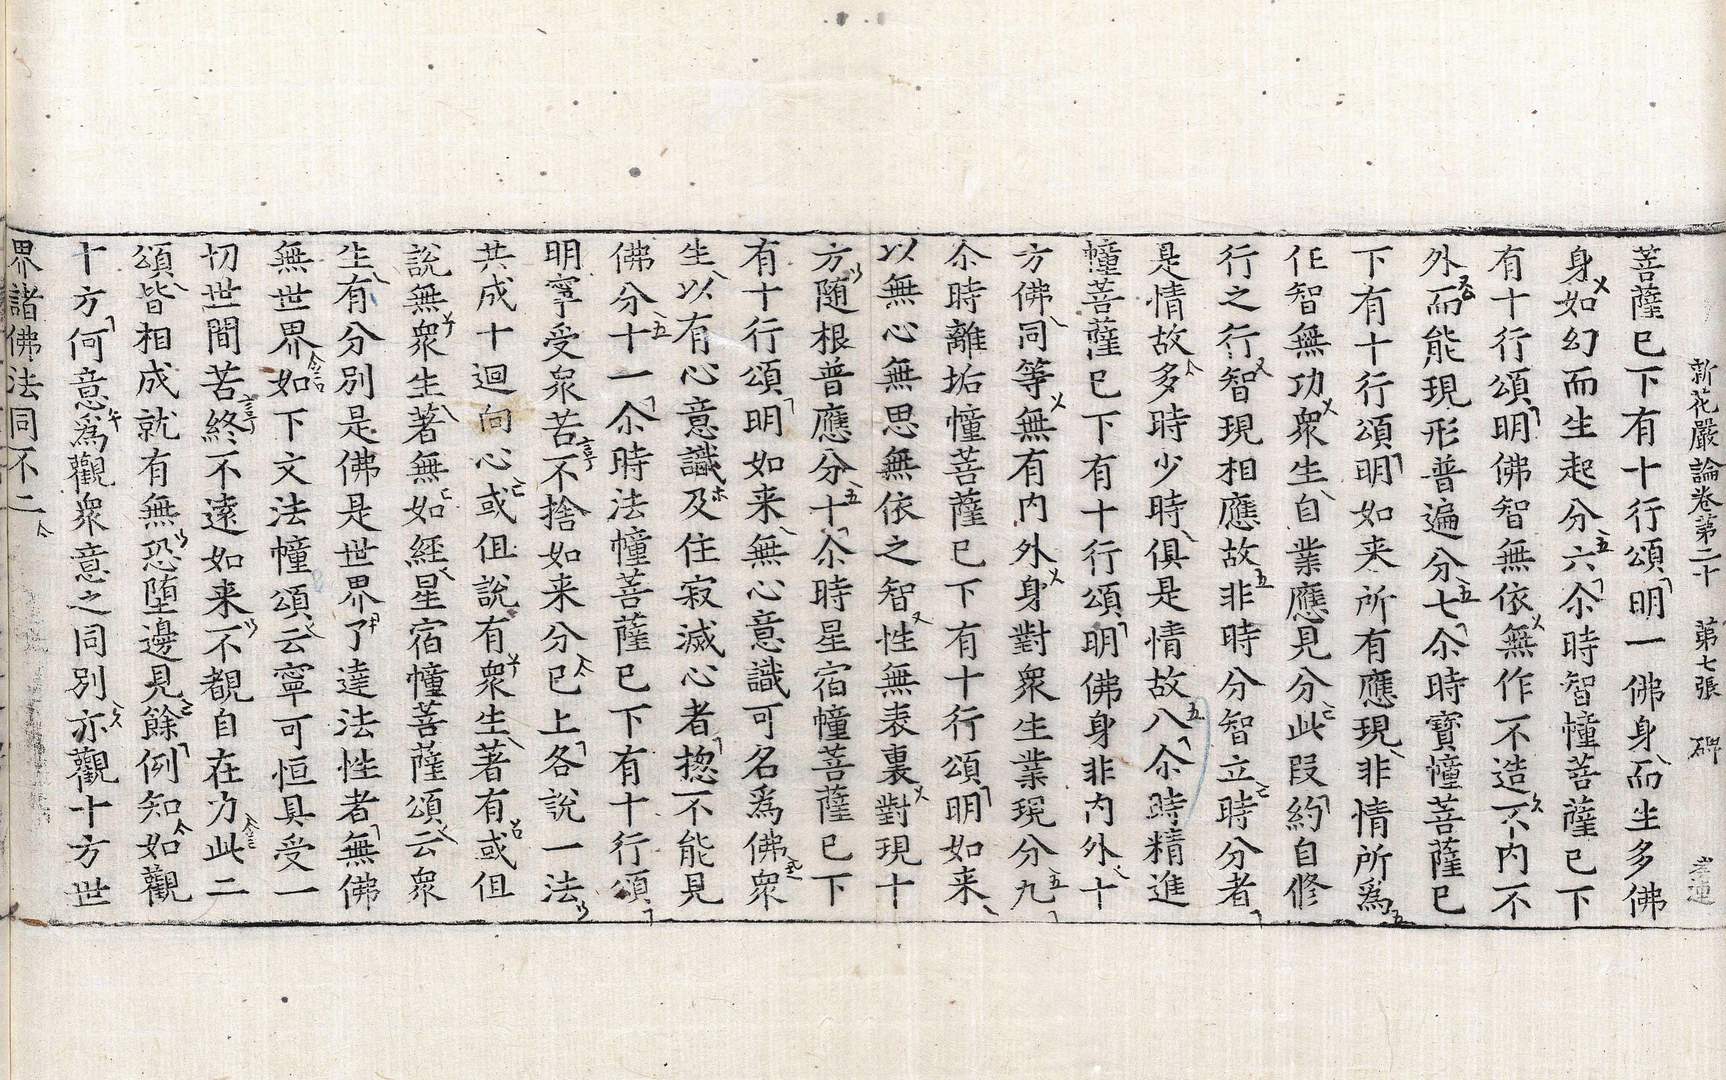 新花嚴論卷第二十　第七張　碑
菩薩已下有十行頌明一佛身而生多佛
身如幻而生起分六尒時智幢菩薩已下
有十行頌明佛智無依無作不造不内不
外而能現形普遍分七尒時寶幢菩薩已
下有十行頌明如来所有應現非情所為
任智無功衆生自業應見分此段約自修
行之行智現相應故非時分智立時分者
是情故多時少時俱是情故八尒時精進
幢菩薩已下有十行頌明佛身非内外十
方佛同等無有内外身對衆生業現分九
尒時離垢幢菩薩已下有十行頌明如来
以無心無思無依之智性無表裏對現十
方随根普應分十尒時星宿幢菩薩已下
有十行頌明如来無心意識可名為佛衆
生以有心意識及住寂滅心者揔不能見
佛分十一尒時法幢菩薩已下有十行頌
明寧受衆苦不捨如来分已上各說一法
共成十迴向心或伹說有衆生著有或伹
說無衆生著無如經星宿幢菩薩頌云衆
生有分別是佛是世界了達法性者無佛
無世界如下文法幢頌云寧可恒具受一
切世間苦終不遠如来不覩自在力此二
頌皆相成就有無恐堕邊見餘例知如觀
十方何意為觀衆意之同別亦觀十方世
界諸佛法同不二